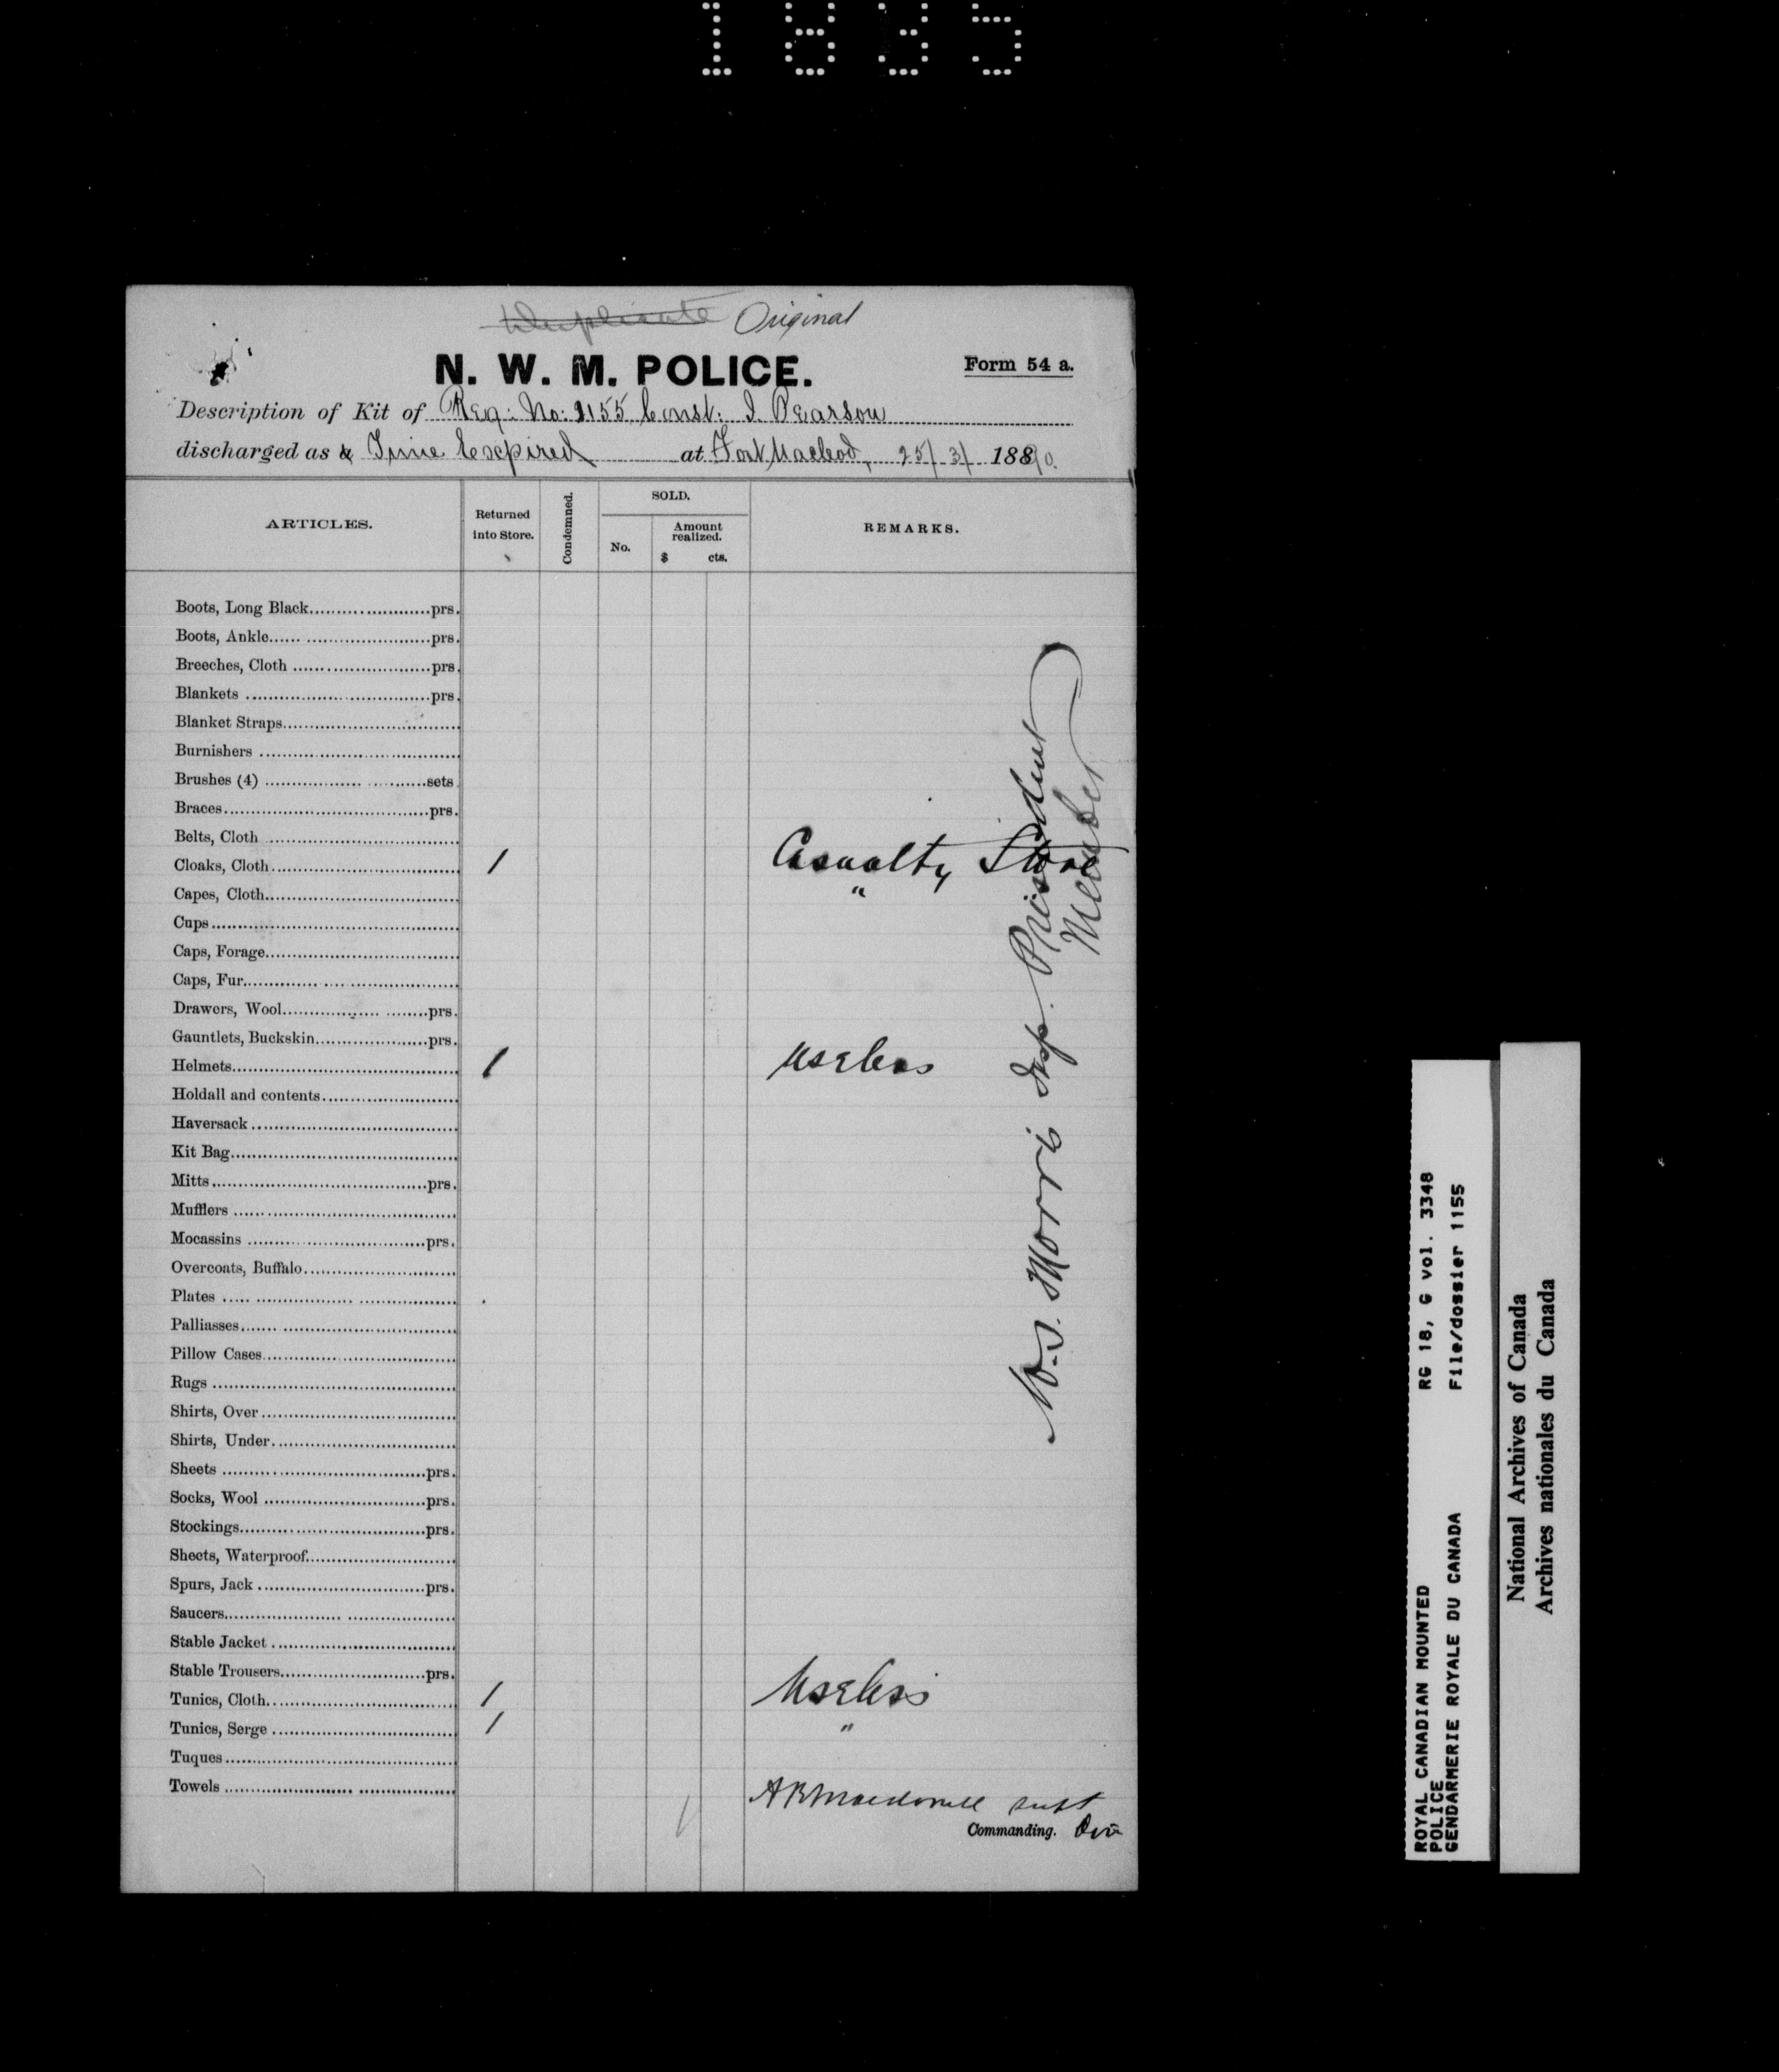 1835
Duplicate Original
N. W. M. POLICE.
Form 54 a.
Description of Kit of Reg: No: 1155 Const: I. Pearson
discharged as Time Expired at Fort Macleod, 25/3/ 1890.
ARTICLES.
Returned into Store.
Condemned.
SOLD.
No.
Amount realized.
$ cts.
REMARKS.
Boots, Long Black prs.
Boots, Ankle prs.
Breeches, Cloth prs.
Blankets prs.
Blanket Straps
Burnishers
Brushes (4) sets
Braces prs.
Belts, Cloth
Cloaks, Cloth 1 Casualty Store
Capes, Cloth "
Cups
Caps, Forage
Caps, Fur
Drawers, Wool prs.
Gauntlets, Buckskin prs.
Helmets 1 Useless
Holdall and contents
Haversack
Kit Bag
Mitts prs.
Mufflers
Mocassins prs.
Overcoats, Buffalo
Plates
Palliasses
Pillow Cases
Rugs
Shirts, Over
Shirts, Under
Sheets prs.
Socks, Wool prs.
Stockings prs.
Sheets, Waterproof
Spurs, Jack prs.
Saucers
Stable Jacket
Stable Trousers prs.
Tunics, Cloth 1 Useless
Tunics, Serge 1 "
Tuques
Towels
A R Macdonell Supt
Commanding. Div
Morris Insp. President
Member
ROYAL CANADIAN MOUNTED RG 18, G vol. 3348
POLICE
GENDARMERIE ROYALE DU CANADA File/dossier 1155
National Archives of Canada
Archives nationales du Canada